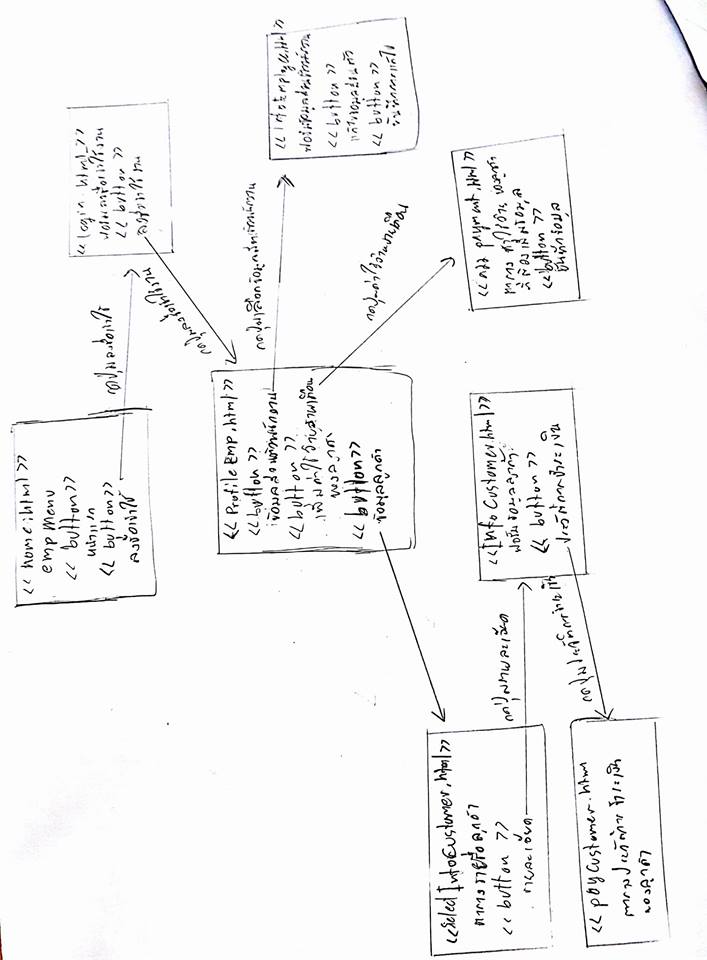 << home.html >>
emp Menu
<< button >>
หน้าแรก
<< button >>
ลงชื่อเข้าใช้
กดปุ่มลงชื่อเข้าใช้
<< login.html >>
ฟอร์มลงชื่อเข้าใช้งาน
<< button >>
ลงชื่อเข้าใช้งาน
กดปุ่มลงชื่อเข้าใช้งาน
<< Profile Emp.html >>
<< button >>
ข้อมูลส่วนตัวพนักงาน
<< button >>
เพิ่มค่าใช้จ่ายรายเดือน
ของลูกค้า
<< button >>
ข้อมูลลูกค้า
กดปุ่มเลือกข้อมูลส่วนตัวพนักงาน
<< InfoEmployee.html >>
ฟอร์มข้อมูลส่วนตัวพนักงาน
<< button >>
แก้ไขข้อมูลส่วนตัว
<< button >>
บันทึกการแก้ไข
กดปุ่มค่าใช้จ่ายรายเดือน
<< Add payment.html >>
ตาราง ค่าใช้จ่าย ของลูกค้า
ที่ต้องเพิ่มข้อมูล
<< button >>
บันทึกข้อมูล
<< Select InfoCustomer.html >>
ตาราง รายชื่อ ลูกค้า
<< button >>
รายละเอียด
กดปุ่มรายละเอียด
<< Info Customer.html >>
ฟอร์ม ข้อมูลลูกค้า
<< button >>
ประวัติการชำระเงิน
กดปุ่มประวัติการชำระเงิน
<< payCustomer.html
ตารางประวัติการ ชำระเงิน
ของลูกค้า